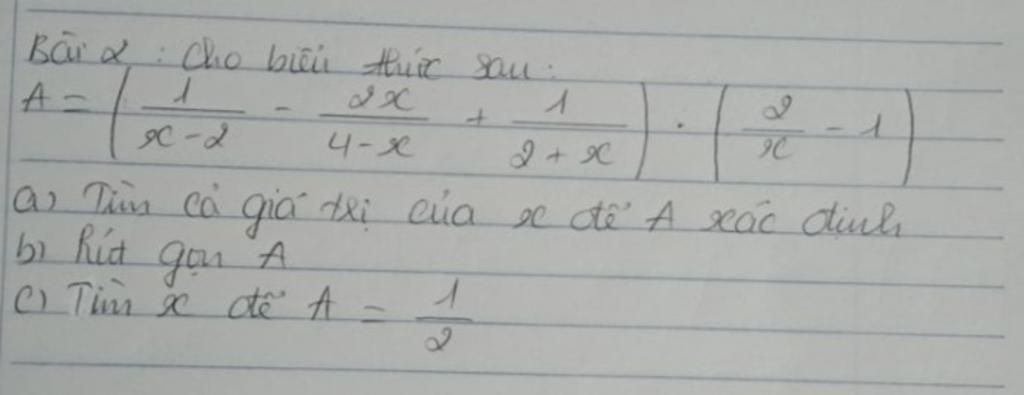 Bài 2 : Cho biểu thức sau :
A = ( 1/(x-2) - 2x/(4-x) + 1/(2+x) ) . ( 2/x - 1 )
a) Tìm cả giá trị của x để A xác định
b) Rút gọn A
c) Tìm x để A = 1/2